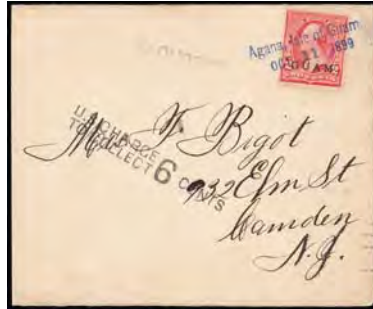 Agana, Isle of Guam
OCT 21 1899
GUAM
U.S. CHARGE
TO COLLECT 6 CENTS
Mr. F. Bigot
932 Elm St
Camden
N.J.